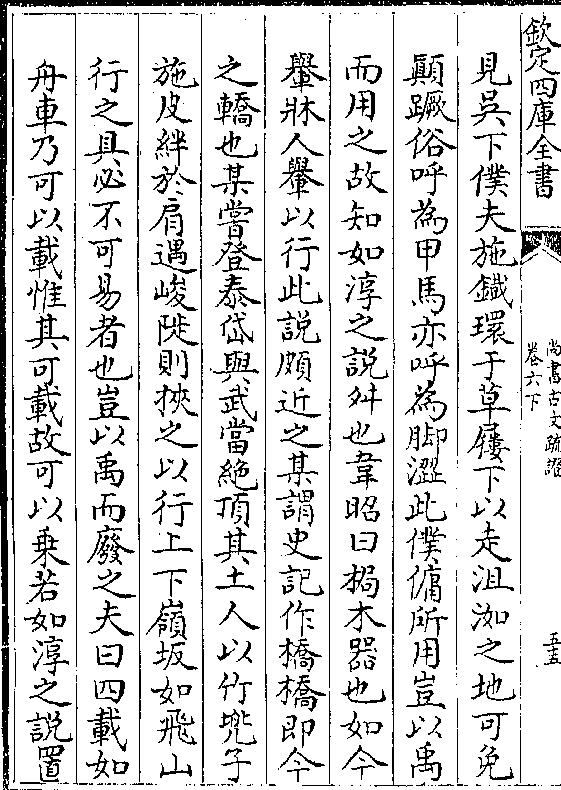 欽定四庫全書
尚書古文疏證
卷六下
五十五
見吳下僕夫施鐵環于草屨下以走沮洳之地可免
顚蹶俗呼為甲馬亦呼為脚澀此僕傭所用豈以禹
而用之故知如淳之說舛也韋昭曰梮木器也如今
轝牀人轝以行此說頗近之某謂史記作橋橋即今
之轎也某嘗登泰岱與武當絶頂其土人以竹兠子
施皮絆於肩遇峻陡則挾之以行上下嶺坂如飛山
行之具必不可易者也豈以禹而廢之夫曰四載如
舟車乃可以載惟其可載故可以乗若如淳之說置